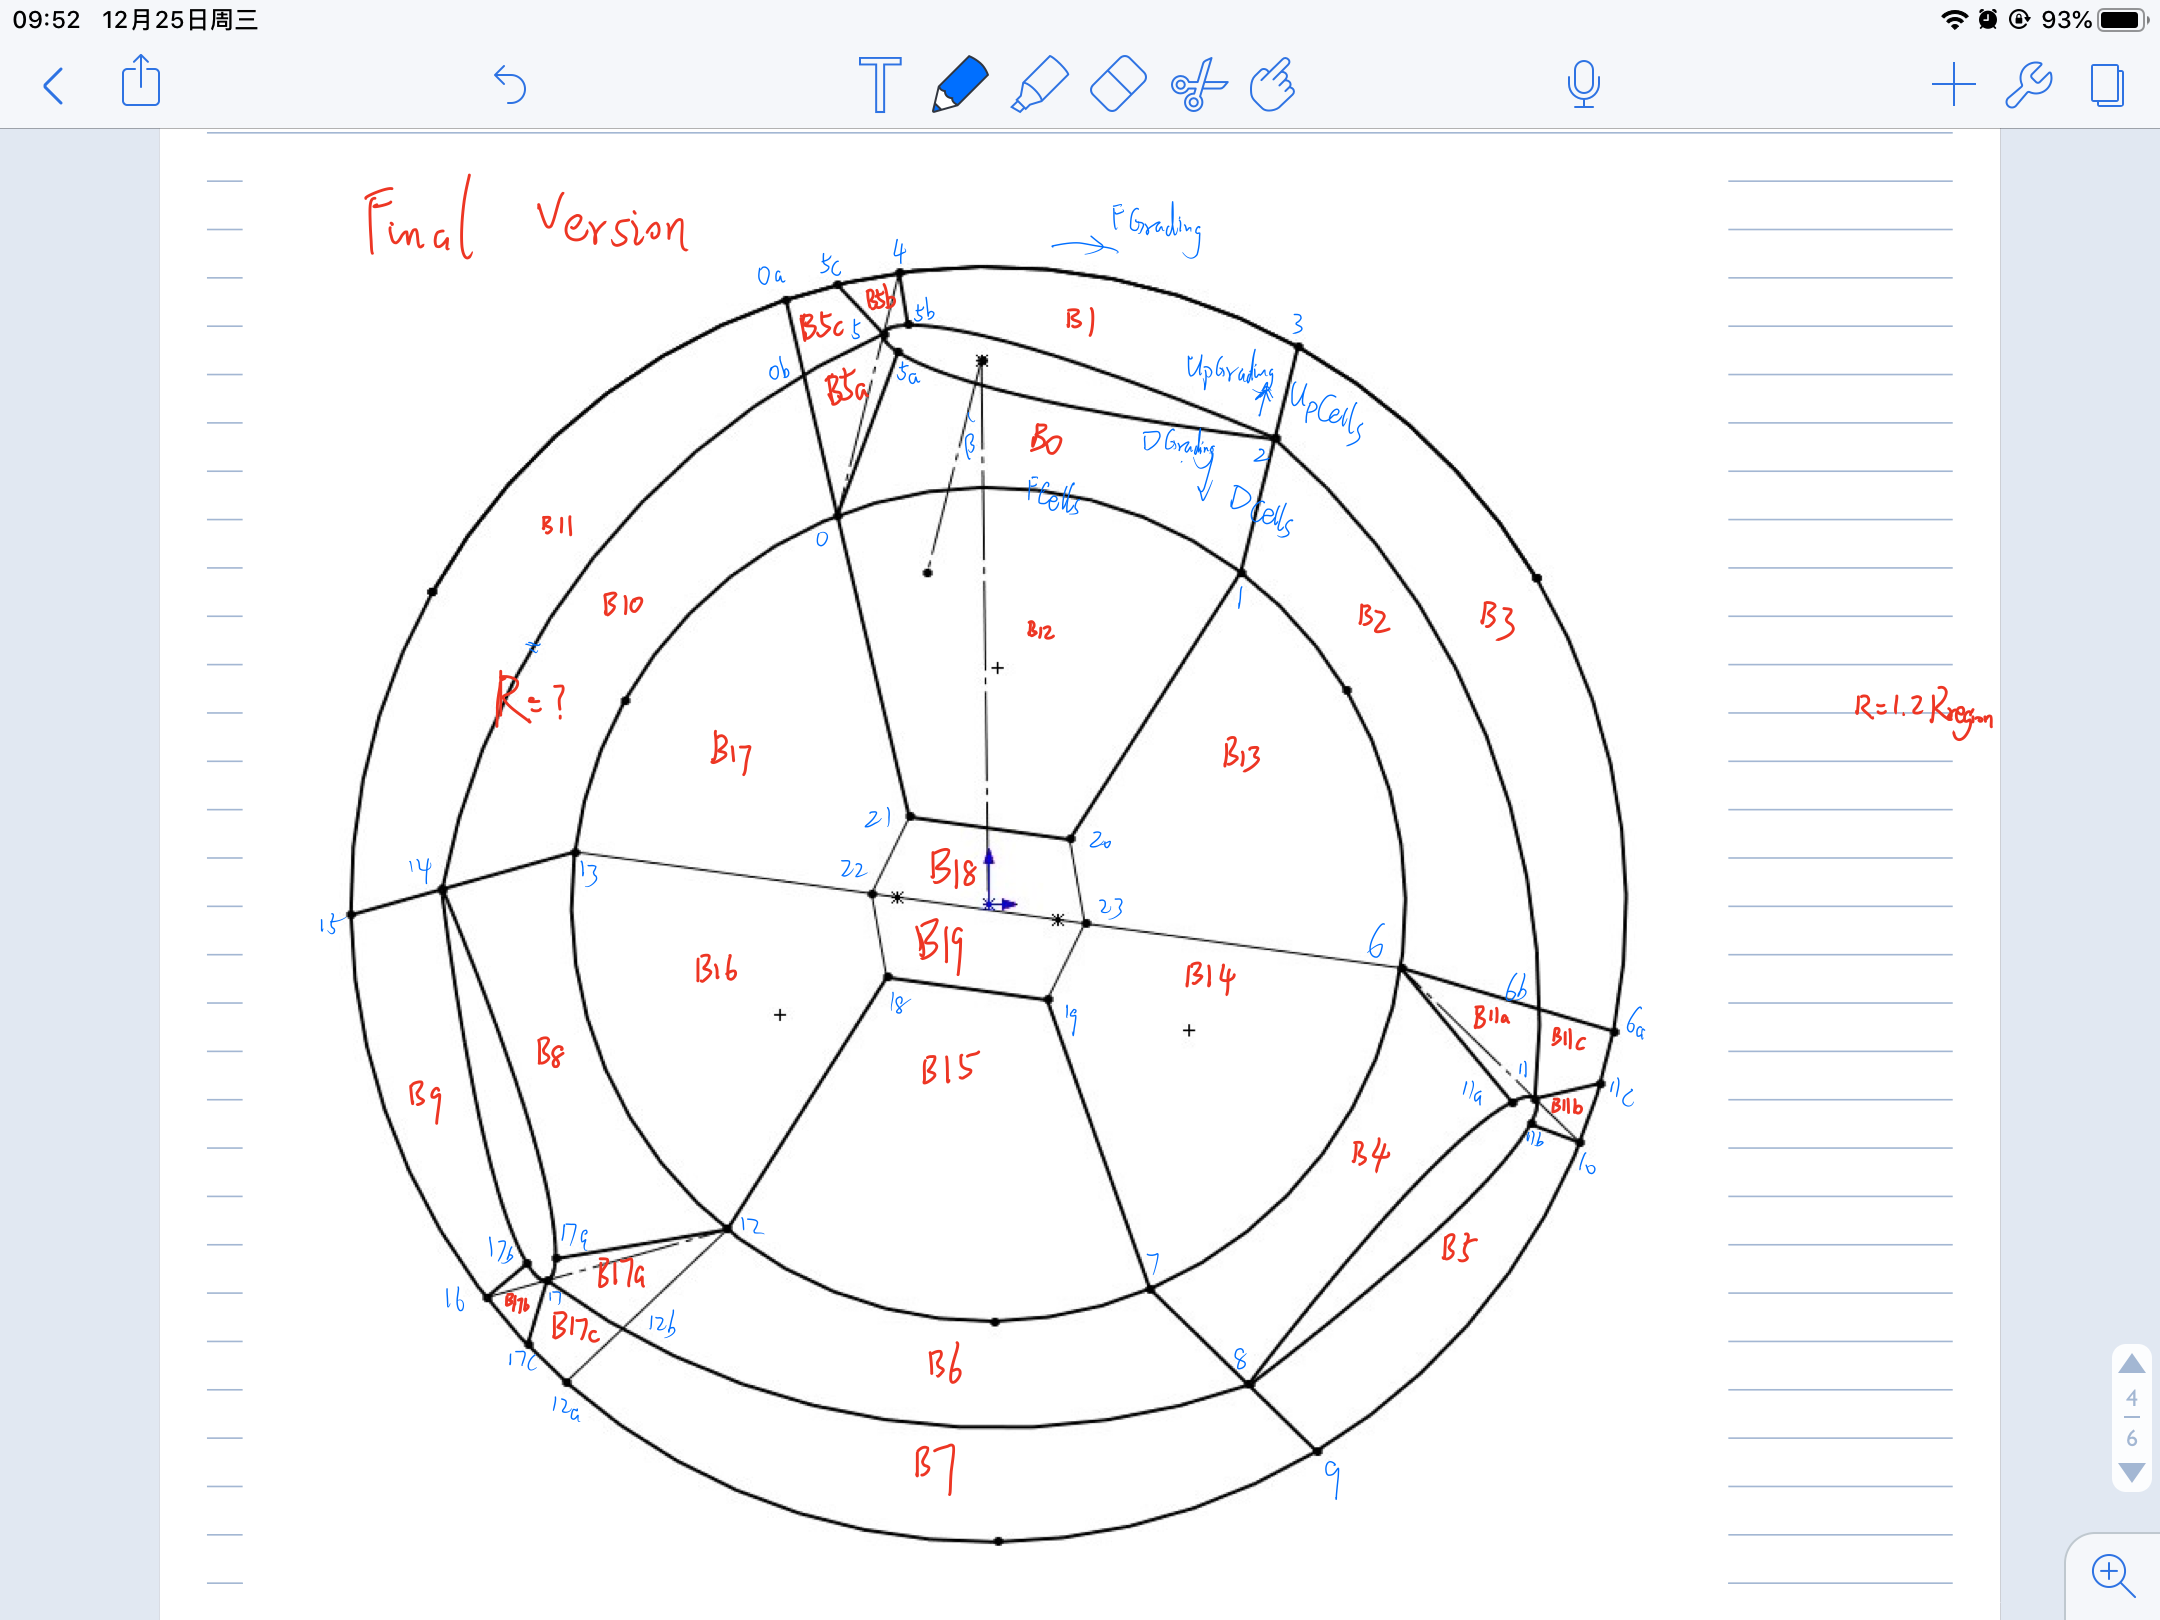 09:52 12月25日周三
93%
T
Final Version
FGrading
0a 5c 4
B5b 5b B1 3
B5c 5
0b B5a 5a UpGrading UpCells
β B0 DGrading 2
FCells DCells
B11 0
1
B10 B12 B2 B3
R=?
R=1.2 Rregion
B17 B13
21 20
14 13 22 B18 23
15 B19 6
B16 B14 6b 6a
18 19 B11a B11c
B8 B15 11 11c
B9 11a B11b
11b 10
B4
17b 17a 12 7 B5
16 B17b 17 B17a
B17c 12b
17c B6 8
12a
B7 9
4
6